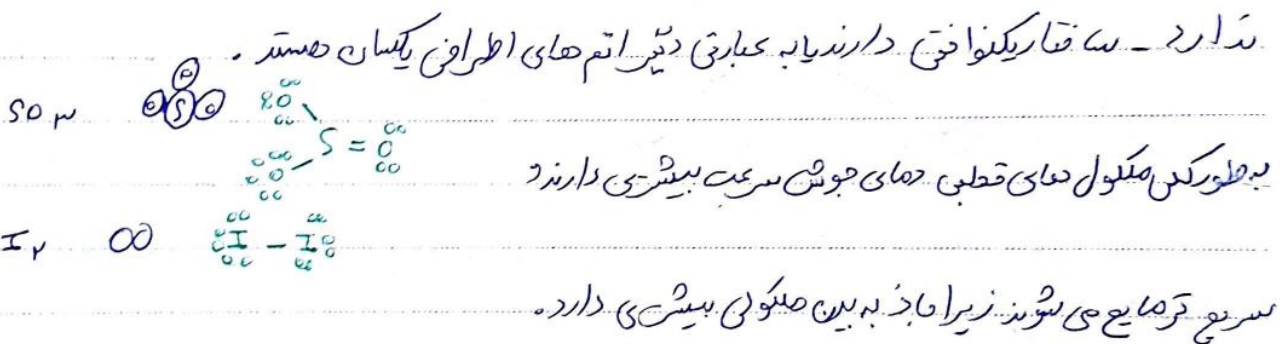 ندارد - ساختار یکنواختی دارند یا به عبارتی دیگر اتم های اطرافی یکسان هستند.
SO۳ O O S O :O: S = O :O:
به طور کلی ملکول های قطبی دمای جوش سرعت بیشتری دارند و
I۲ I - I
سریع تر مایع می شوند زیرا جاذبه بین ملکولی بیشتری دارد.